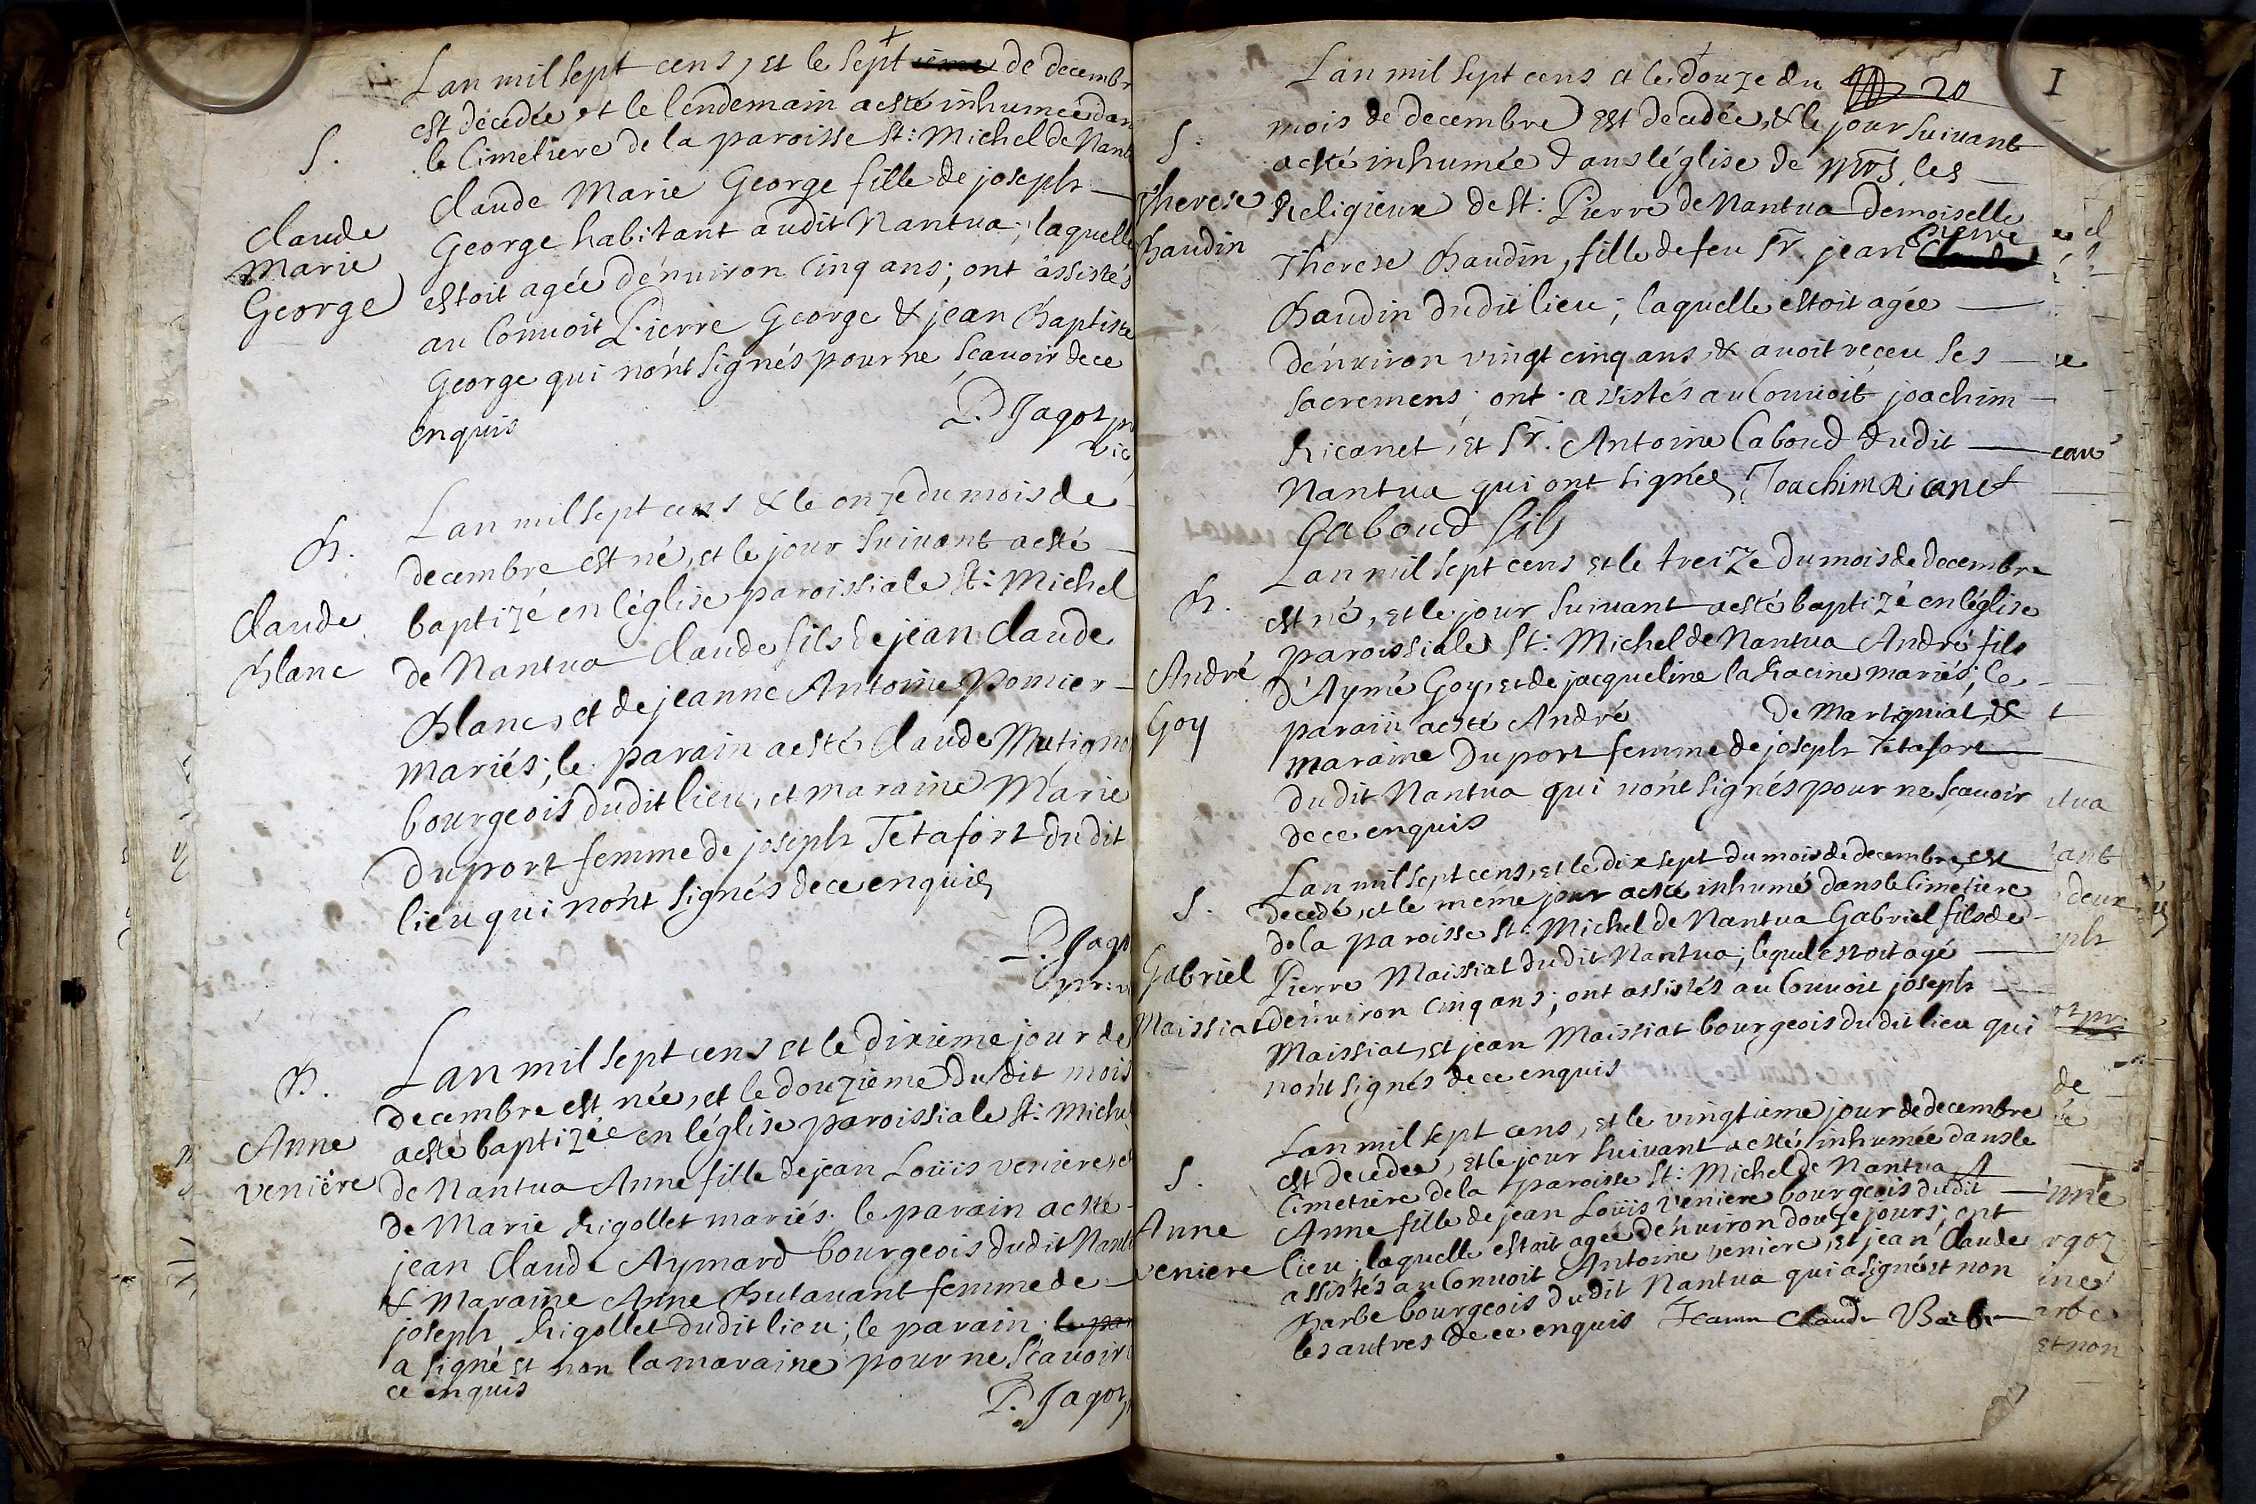 Lan mil sept cens, et le sept de decembr
est decedée et le lendemain a esté inhumée dan
le Cimetiere de la paroisse St: Michel de Nant
S.
Claude Marie George fille de joseph
George habitant audit Nantua; laquelle
estoit agée d'enuiron Cinq ans; ont assistés
au Conuoit Pierre George & jean Baptiste
George qui n'ont signés pour ne scauoir de ce
enquis
Claude
Marie
George
P. Jagot pr
vic
Lan mil sept cens & le onze du mois de
decembre est né, et le jour suiuant a esté
baptizé en l'église paroissiale St: Michel
de Nantua Claude fils de jean Claude
Blanc, et de jeanne Antoine Pomier
mariés; le parain a esté Claude Mutigno
bourgeois dudit lieu, et maraine Marie
Duport femme de joseph Tetafort dudit
lieu qui n'ont signés de ce enquis
B.
Claude
Blanc
P. Jago
pr: v
Lan mil sept cens et le dixieme jour de
decembre est née, et le douzieme dudit mois
a esté baptizée en l'église paroissiale St: Miche
de Nantua Anne fille de jean Loüis veniere, et
de Marie Rigollet mariés. le parain a esté
jean Claude Aymard bourgeois dudit Nant
& Maraine Anne Butauant femme de
joseph Rigollet dudit lieu; le parain; le par
a signé et non la maraine pour ne scauoir
ce enquis
B.
Anne
veniere
P. Jagoz
1
Lan mil sept cens et le douze du 20
mois de decembre est decedée, & le jour suiuant
a esté inhumée dans l'église de mrs. les
Religieux de St: Pierre de Nantua Demoiselle
Therese Baudin, fille de feu Sr. jean Pierre
Baudin dudit lieu; laquelle estoit agée
d'enuiron vingt cinq ans, & auoit receu ses
sacremens; ont assistés au Conuoit joachim
Ricanet, et Sr. Antoine Caboud dudit
Nantua qui ont signés, Joachim Ricanet
Gaboud fils
S.
Therese
Baudin
Lan mil sept cens et le treize du mois de decembre
est né, et le jour suiuant a esté baptizé en l'église
paroissiale St: Michel de Nantua André fils
d'Aymé Goy, et de jacqueline la Racine mariés; le
parain a esté André de Martigniat, &
maraine Duport femme de joseph Tetafort
dudit Nantua qui n'ont signés pour ne scauoir
de ce enquis
B.
André
Goy
Lan mil sept cens, et le dix sept du mois de decembre, est
decedé, et le méme jour a esté inhumé dans le Cimetiere
de la paroisse St: Michel de Nantua Gabriel fils de
Pierre Maissiat dudit Nantua; lequel estoit agé
d'enuiron Cinq ans; ont assistés au Conuoit joseph
Maissiat, et jean Maissiat bourgeois dudit lieu qui
n'ont signés de ce enquis
S.
Gabriel
Maissiat
Lan mil sept cens, et le vingtieme jour de decembre
est decedée, et le jour suiuant a esté inhumée dans le
Cimetiere de la paroisse St: Michel de Nantua A
Anne fille de jean Loüis Veniere bourgeois dudit
lieu; laquelle estoit agée d'enuiron douze jours; ont
assistés au Conuoit Antoine veniere, et jean Claude
Barbe bourgeois dudit Nantua qui a signé et non
les autres de ce enquis Jeann Claude Barbe
S.
Anne
veniere